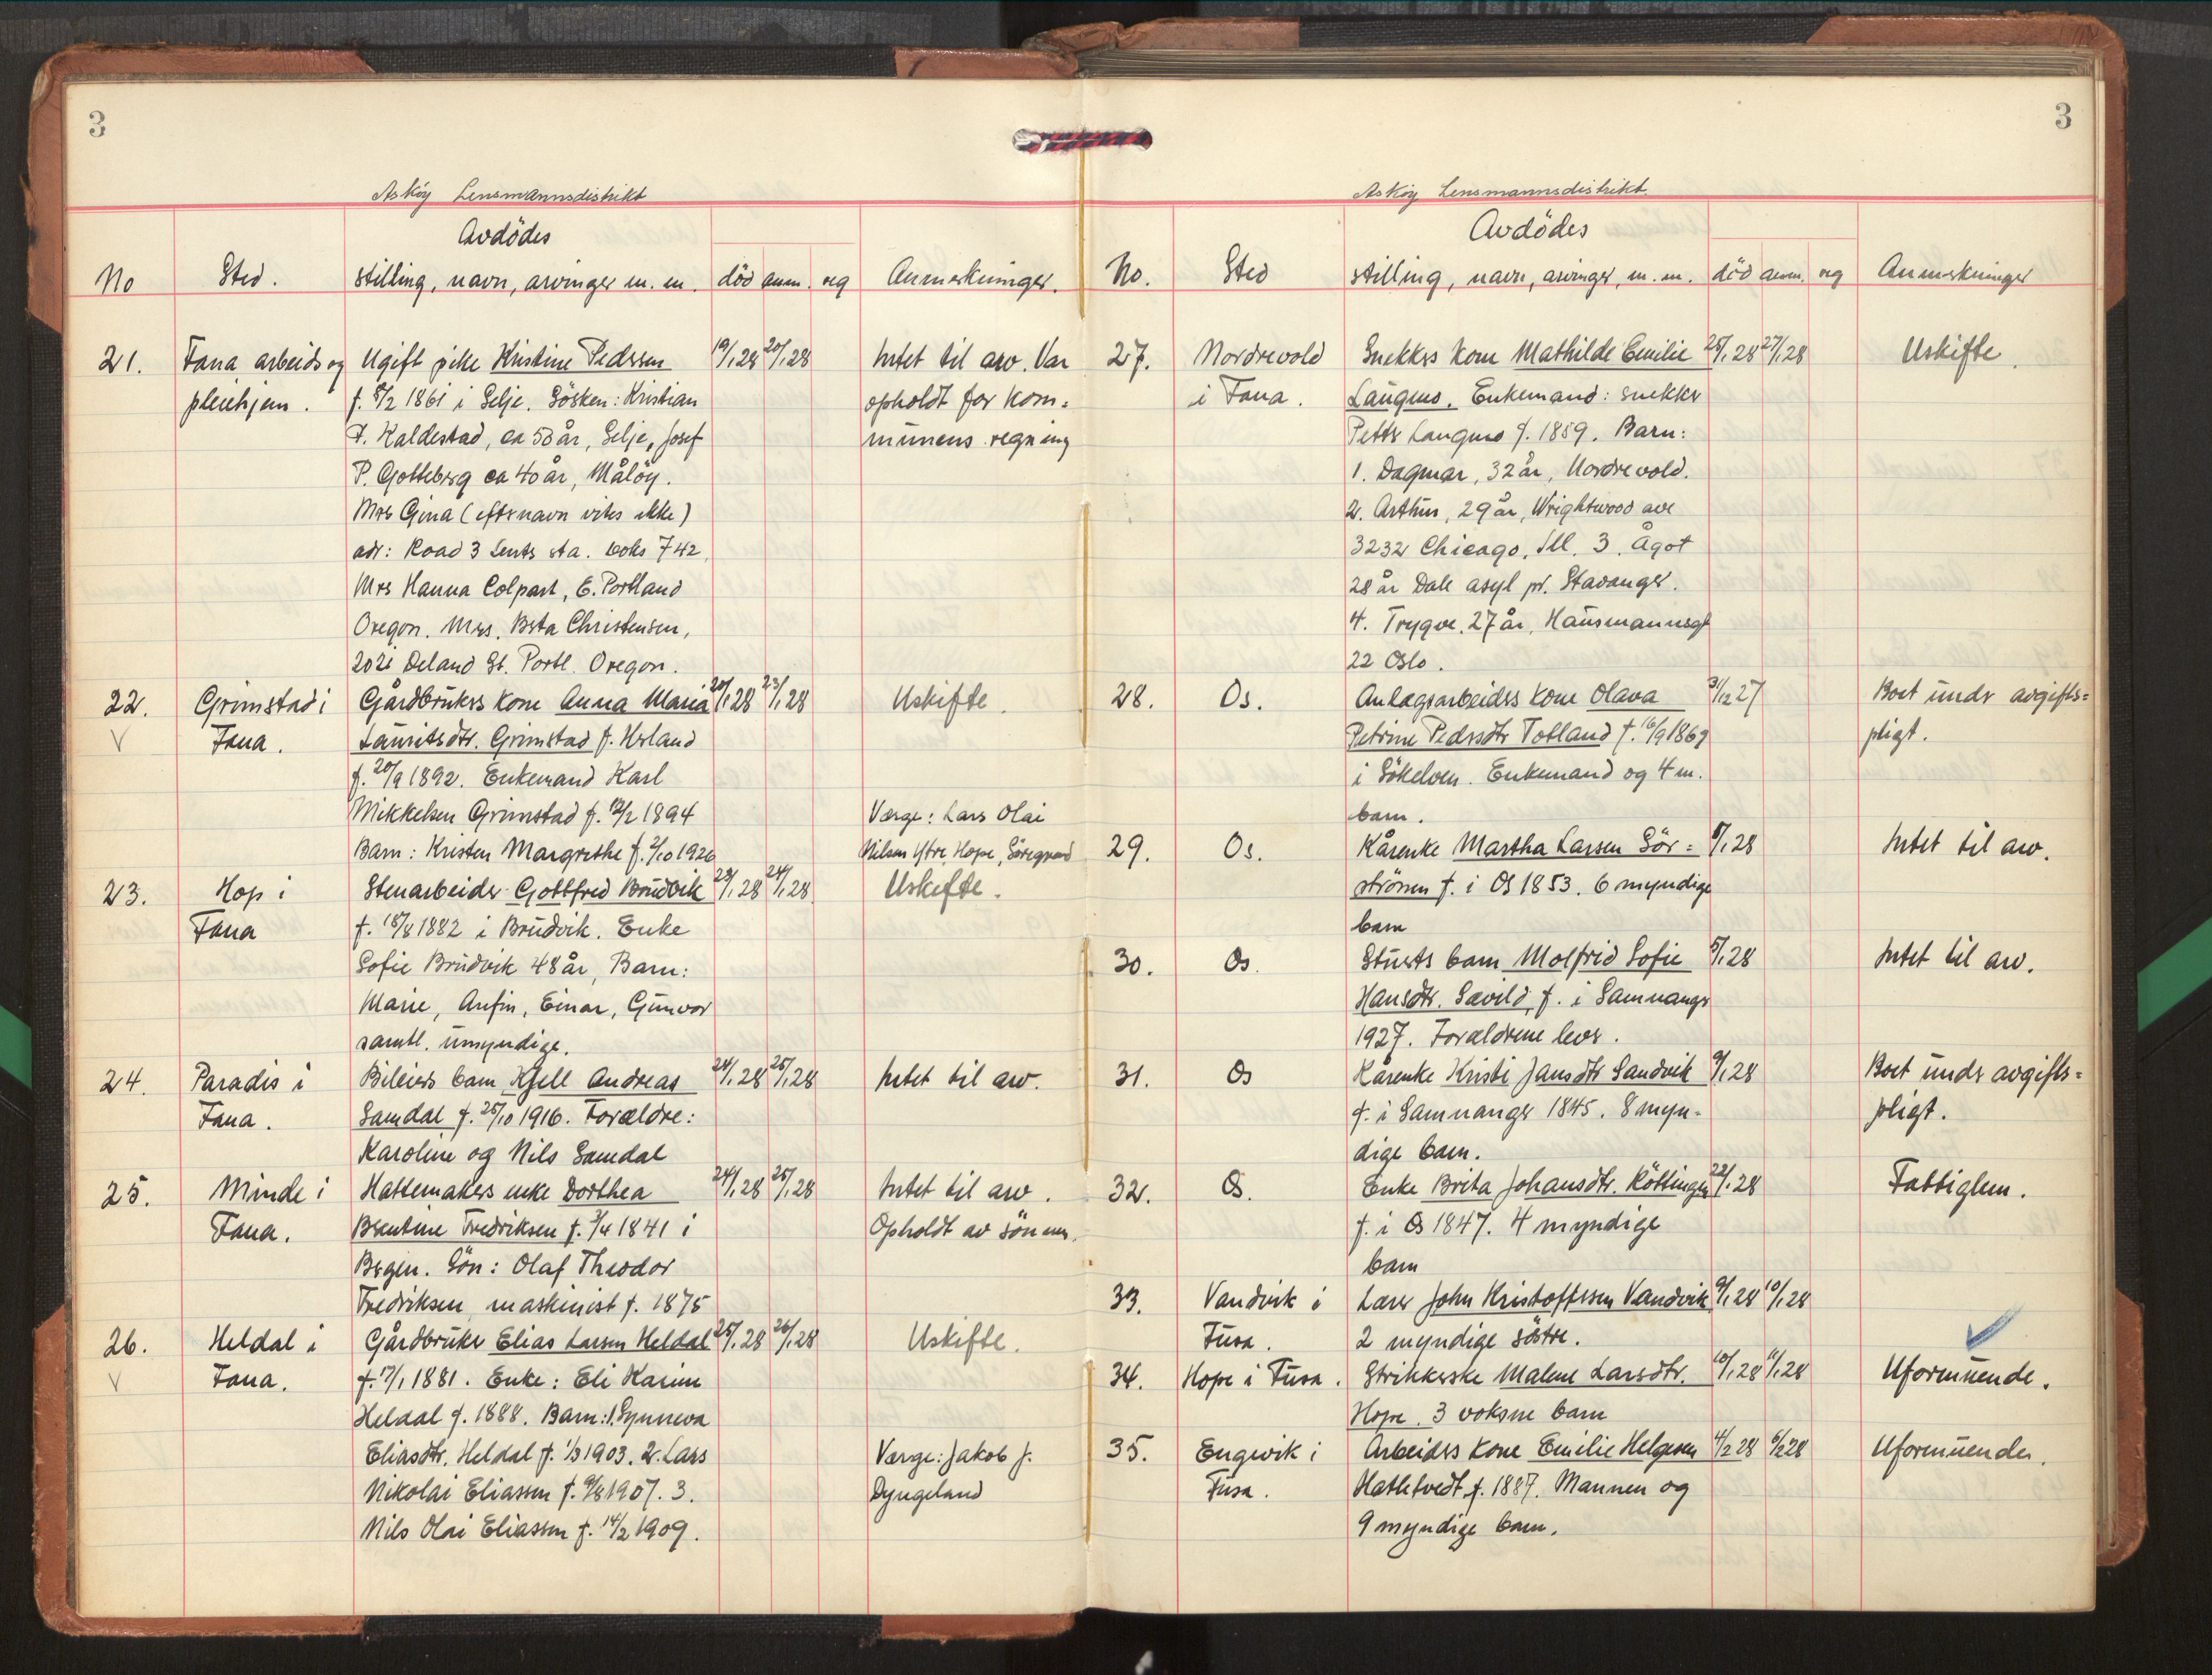 3
Asköy Lensmannsdistrikt
Avdödes
No Sted. stilling, navn, arvinger m. m. död anm. reg Anmerkninger.
21. Fana arbeids og Ugift pike Kristine Pedersen 19/1 28 20/1 28 Intet til arv. Var
pleiehjem. f. 5/2 1861 i Selje. Sösken: Kristian opholdt for kom=
P. Kaldestad, ca 50 år, Selje, Josef munens regning
P. Gotteberg ca 40 år, Målöy.
Mrs Gina (efternavn vites ikke)
adr: Road 3 Lents sta. boks 742,
Mrs Hanna Colpart, E. Portland
Oregon. Mrs. Berta Christensen,
2021 Deland St. Portl. Oregon.
22. Grimstad i Gårdbrukers kone Anna Maria 20/1 28 23/1 28 Uskifte.
V Fana. Lauritsdtr. Grimstad f. Herland
f. 20/9 1892. Enkemand Karl
Mikkelsen Grimstad f. 12/2 1894 Verge: Lars Olai
Barn: Kristen Margrethe f. 2/10 1926 Nilsen Ytre Hope,
23. Hop i Stenarbeider Gottfred Brudvik 23/1 28 24/1 28 Uskifte.
Fana f. 18/8 1882 i Brudvik. Enke
Sofie Brudvik 48 år, Barn:
Marie, Anfin, Einar, Gunvor
samtl. umyndige.
24. Paradis i Bileiers barn Kjell Andreas 24/1 28 25/1 28 Intet til arv.
Fana. Samdal f. 25/10 1916. Forældre:
Karoline og Nils Samdal
25. Minde i Hattemakers enke Dorthea 24/1 28 25/1 28 Intet til arv.
Fana. Berentine Fredriksen f. 3/4 1841 i Opholdt av sönnen.
Bergen. Sön: Olaf Theodor
Fredriksen maskinist f. 1875
26. Heldal i Gårdbruker Elias Larsen Heldal 25/1 28 26/1 28 Uskifte.
V Fana. f. 17/1 1881. Enke: Eli Karine
Heldal f. 1888. Barn: 1. Synneva
Eliasdtr. Heldal f. 1/3 1903. 2. Lars Verge: Jakob J.
Nikolai Eliassen f. 9/8 1907. 3. Dyngeland
Nils Olai Eliassen f. 14/2 1909.
3
Asköy Lensmannsdistrikt.
Avdödes
No. Sted stilling, navn, arvinger, m. m. död anm. reg Anmerkninger
27. Nordrevold Snekkers kone Mathilde Emilie 25/1 28 27/1 28 Uskifte.
i Fana. Langmo. Enkemand: snekker
Petter Langmo f. 1859. Barn:
1. Dagmar, 32 år, Nordrevold.
2. Arthur, 29 år, Wrightwood ave
3232 Chicago, Ill. 3. Ågot
28 år Dale asyl pr. Stavanger.
4. Trygve, 27 år, Hausmannsgt
22 Oslo.
28. Os. Anlægsarbeiders kone Olava 31/12 27 Boet under avgifts=
Petrine Pedersdtr Totland f. 16/9 1869 pligt.
i Sökelven. Enkemand og 4 m.
barn.
29. Os. Kårenke Martha Larsen Sör= 8/1 28 Intet til arv.
strönen f. i Os 1853. 6 myndige
barn
30. Os. Stuerts barn Molfrid Sofie 5/1 28 Intet til arv.
Hansdtr. Sævild, f. i Samnanger
1927. Forældrene lever.
31. Os Kårenke Kristi Jansdtr Sandvik 9/1 28 Boet under avgifts=
f. i Samnanger 1845. 8 myn- pligt.
dige barn.
32. Os. Enke Brita Johansdtr. Röttingen 22/1 28 Fattiglem.
f. i Os 1847. 4 myndige
barn
33. Vandvik i Lærer John Kristoffersen Vandvik 9/1 28 10/1 28
Fusa. 2 myndige söstre.
34. Hope i Fusa. Strikkerske Malene Larsdtr. 10/1 28 11/1 28 Uformuende.
Hope. 3 voksne barn
35. Engevik i Arbeiders kone Emilie Helgesen 4/2 28 6/2 28 Uformuende.
Fusa. Hatletvedt f. 1887. Mannen og
9 myndige barn.